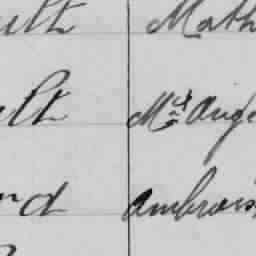 ult Math
lt Mrs Ange
nd Ambrois